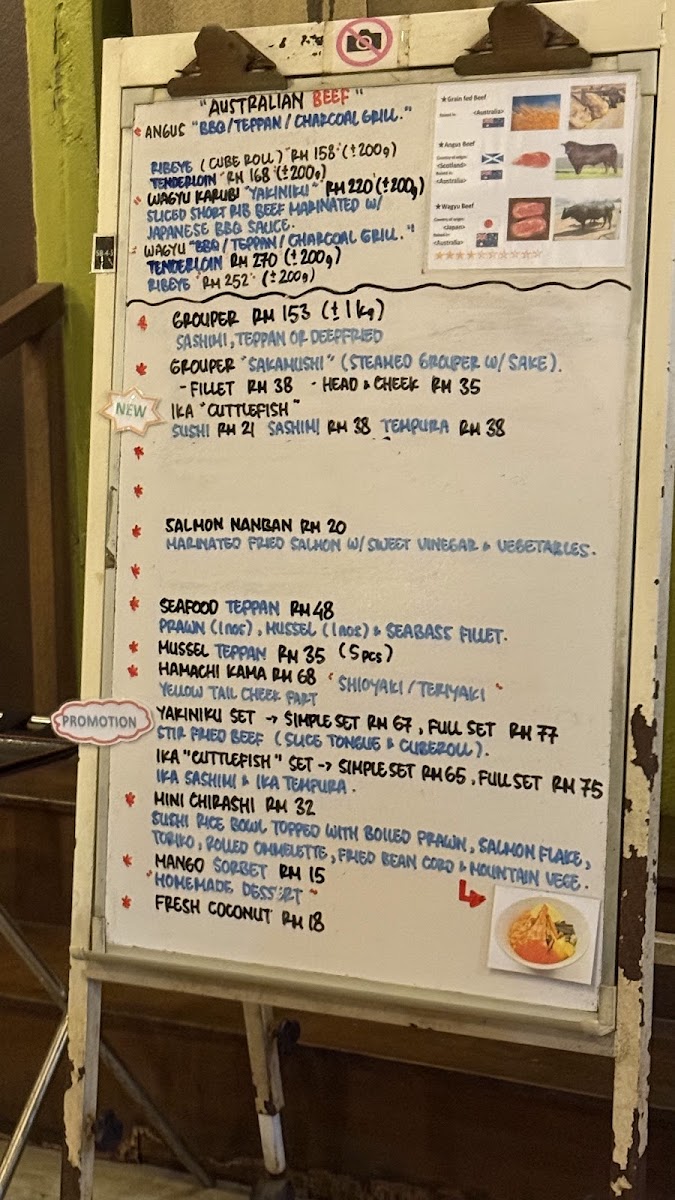 "AUSTRALIAN BEEF"
ANGUS "BBQ/TEPPAN/CHARCOAL GRILL."
RIBEYE (CUBE ROLL) RM 158 (±200g)
TENDERLOIN RM 168 (±200g)
WAGYU KARUBI "YAKINIKU" RM 220 (±200g)
SLICED SHORT RIB BEEF MARINATED W/
JAPANESE BBQ SAUCE.
WAGYU "BBQ/TEPPAN/CHARCOAL GRILL."
TENDERLOIN RM 270 (±200g)
RIBEYE RM 252 (±200g)
★Grain fed Beef
<Australia>
★Angus Beef
Country of origin
<Scotland>
Raised in
<Australia>
★Wagyu Beef
Country of origin
<Japan>
Raised in
<Australia>
GROUPER RM 153 (±1kg)
SASHIMI, TEPPAN OR DEEPFRIED
GROUPER "SAKAMUSHI" (STEAMED GROUPER W/ SAKE).
- FILLET RM 38 - HEAD & CHEEK RM 35
NEW
IKA "CUTTLEFISH"
SUSHI RM 21 SASHIMI RM 38 TEMPURA RM 38
SALMON NANBAN RM 20
MARINATED FRIED SALMON W/ SWEET VINEGAR & VEGETABLES.
SEAFOOD TEPPAN RM 48
PRAWN (1nos), MUSSEL (1nos) & SEABASS FILLET.
MUSSEL TEPPAN RM 35 (5pcs)
HAMACHI KAMA RM 68 "SHIOYAKI/TERIYAKI"
YELLOW TAIL CHEEK PART
PROMOTION
YAKINIKU SET → SIMPLE SET RM 67, FULL SET RM 77
STIR FRIED BEEF (SLICE TONGUE & CUBEROLL).
IKA "CUTTLEFISH" SET → SIMPLE SET RM 65, FULL SET RM 75
IKA SASHIMI & IKA TEMPURA.
MINI CHIRASHI RM 32
SUSHI RICE BOWL TOPPED WITH BOILED PRAWN, SALMON FLAKE,
TOBIKO, ROLLED OMMELETTE, FRIED BEAN CORD & MOUNTAIN VEGE.
MANGO SORBET RM 15
"HOMEMADE DESSERT"
FRESH COCONUT RM 18